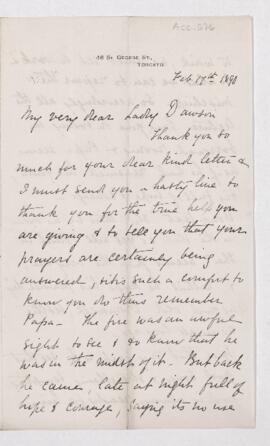 Acc. 576
48 St. George St.,
Toronto.
Feb. 17th 1890
My very dear Lady Dawson
Thank you so
much for your dear kind letter &
I must send you a hasty line to
thank you for the true help you
are giving & to tell you that your
prayers are certainly being
answered, it is such a comfort to
know you do thus remember
Papa - The fire was an awful
sight to see & to know that he
was in the midst of it. But back
he came, late at night full of
hope & courage, saying its no use